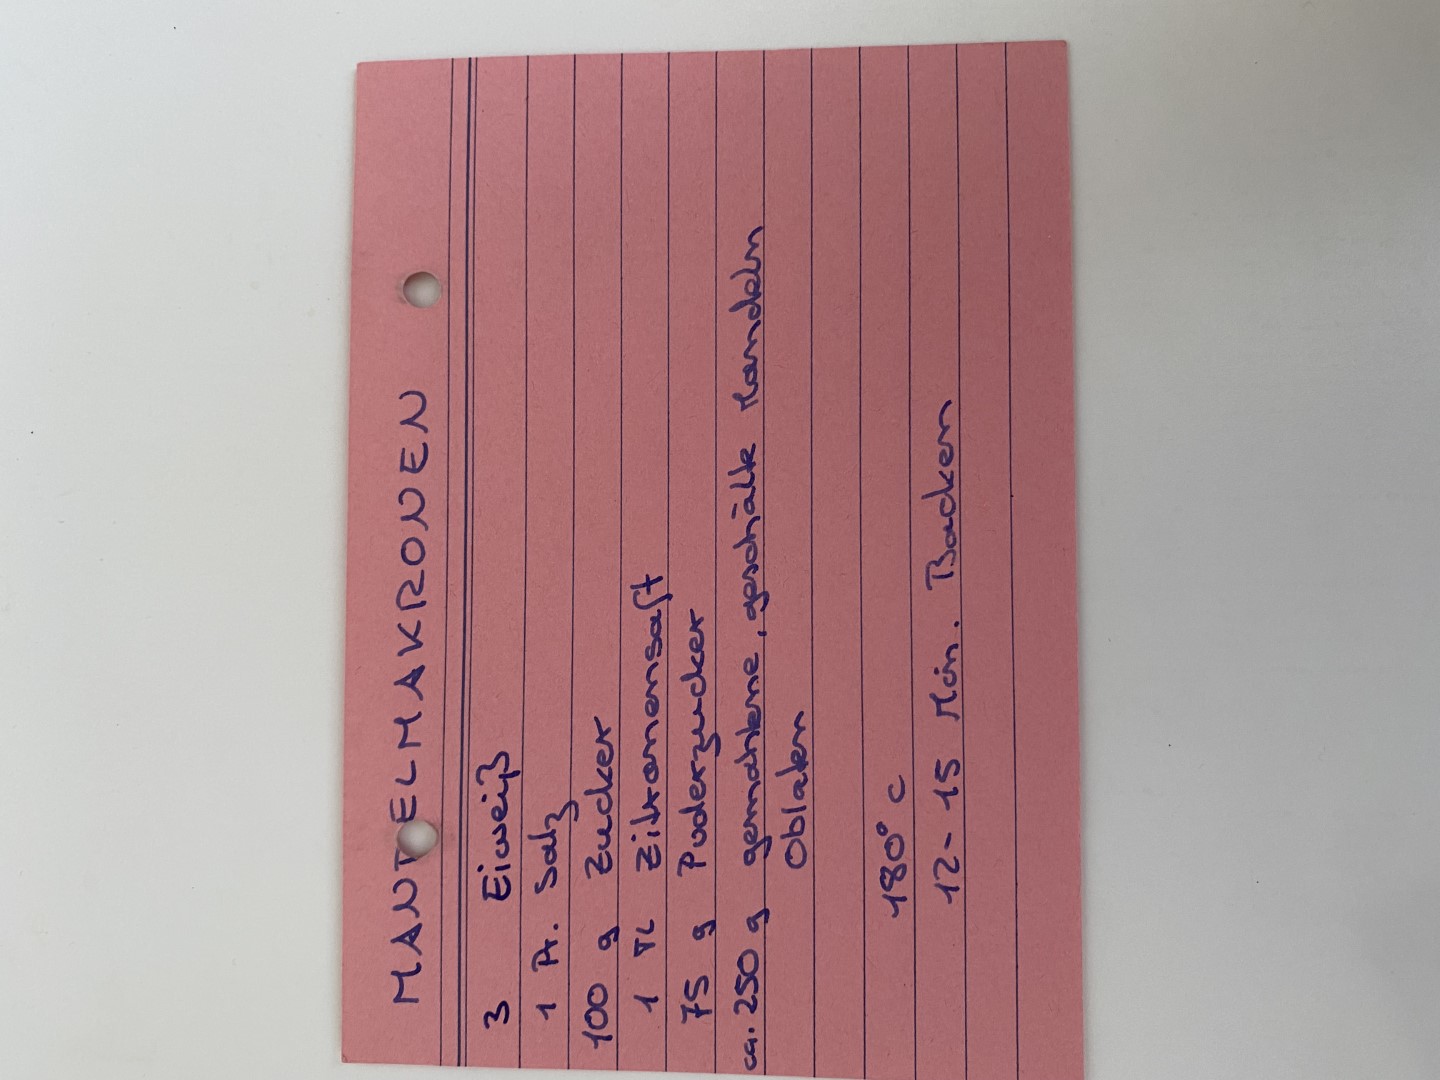 MANDELMAKRONEN
3 Eiweiß
1 Pr. Salz
100 g Zucker
1 TL Zitronensaft
75 g Puderzucker
ca. 250 g gemahlene, geschälte Mandeln
Oblaten
180° C
12-15 Min. Backen